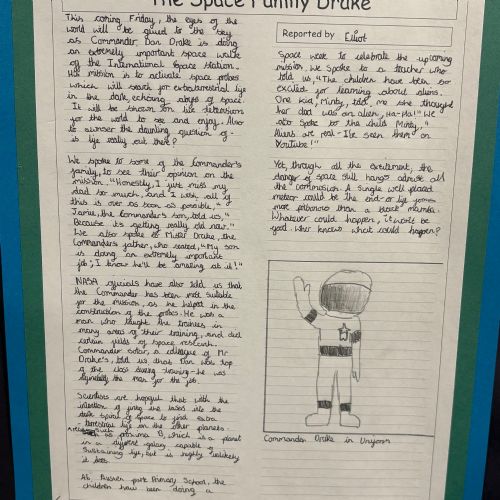 The Space Family Drake
This coming Friday, the eyes of the
world will be glued to the sky
as Commander Dan Drake is doing
an extremely important space walk
of the International Space Station.
His mission is to activate space probes
which will search for extraterrestrial life
in the dark, echoing, abyss of space.
It will be shown on live televisions
for the world to see and enjoy. Also
to answer the daunting question of -
is life really out there?
We spoke to some of the Commander's
family, to see their opinion on the
mission. "Honestly, I just miss my
dad so much, and I wish all of
this is over as soon as possible,"
Jamie, the Commander's son, told us, "
Because its getting really old now."
We also spoke to Mister Drake, the
Commanders father, who stated, "My son
is doing an extremely important
job; I know he'll be amazing at it!"
NASA officials have also told us that
the Commander has been most suitable
for the mission, as he helped in the
construction of the probes. He was a
man who taught the trainees in
many areas of their training, and did
certain fields of space research.
Commander Solar, a colleague of Mr
Drake's, told us, that Dan was top
of the class during training - he was
the man for the job.
Scientists are hopeful that with the
intention of
dark spiral of space to find extra
terrestrial life on the other planets.
such as proxima B, which is a planet
in a different galaxy capable of
sustaining life, but is highly unlikely
it does.
At Bushey park Primary School, the
children have been doing a
Reported by Elliot
Space week to celebrate the upcoming
mission. We spoke to a teacher who
told us, "The children have been so
excited for learning about aliens.
One kid, Minty, told me she thought
her dad was an alien, Ha-Ha!" We
also spoke to the child Minty, "
Aliens are real - I've seen them on
YouTube!"
Yet, through all the excitement, the
danger of space still hangs admist all
the commotion. A single well placed
meteor could be the end - or life forms
more poisonous than a black mamba.
Whatever could happen, it won't be
good. Who knows what could happen?
Commander Drake in Uniform